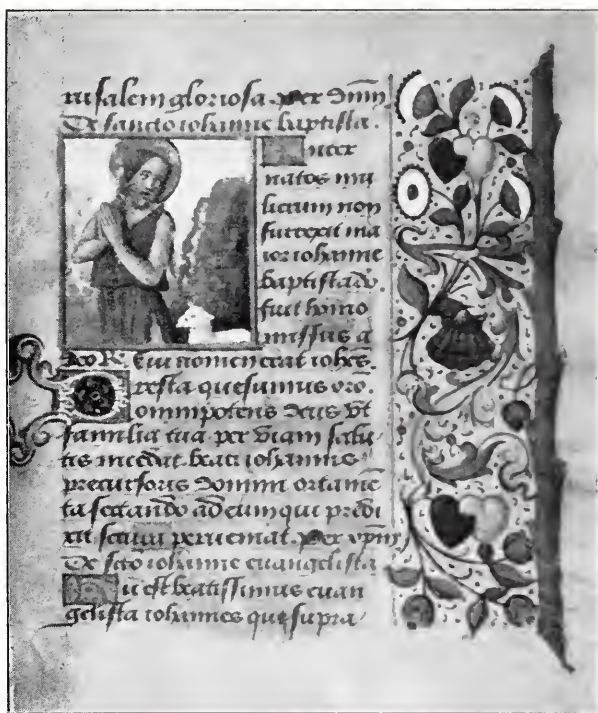 rusalem gloriosa. per dnm
De sancto iohanne baptista.
Inter
natos mu
lierum non
surrexit ma
ior iohanne
baptista. v.
fuit homo
missus a
deo R. Cui nomen erat iohes.
Presta quesumus oro.
omnipotens deus vt
familia tua per viam salu
tis incedat beati iohannis
precursoris domini ortame
ta sectando ad eum qui predi
xit secura perueniat. Per xpm
De scto iohanne euangelista
Hic est beatissimus euan
gelista iohannes qui supra